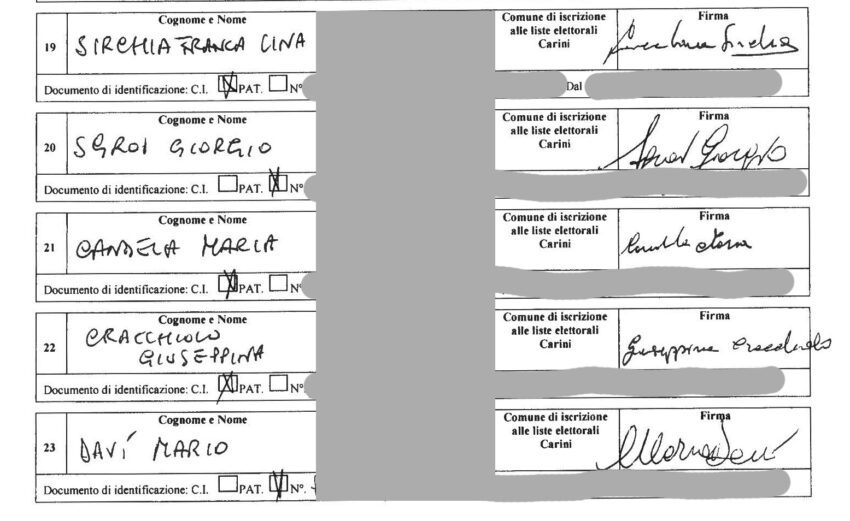 Cognome e Nome
Comune di iscrizione
Firma
19
SIRCHIA FRANCA LINA
alle liste elettorali
Carini
Documento di identificazione: C.I. PAT. N°
Dal
Cognome e Nome
Comune di iscrizione
Firma
20
SGROI GIORGIO
alle liste elettorali
Carini
Giorgio
Documento di identificazione: C.I. PAT. N°
Cognome e Nome
Comune di iscrizione
Firma
21
CANDELA MARIA
alle liste elettorali
Carini
Documento di identificazione: C.I. PAT. N°
Cognome e Nome
Comune di iscrizione
Firma
22
CRACCHIOLO
GIUSEPPINA
alle liste elettorali
Carini
Giuseppina
Documento di identificazione: C.I. PAT. N°
Cognome e Nome
Comune di iscrizione
Firma
23
DAVÍ MARIO
alle liste elettorali
Carini
Documento di identificazione: C.I. PAT. N°.